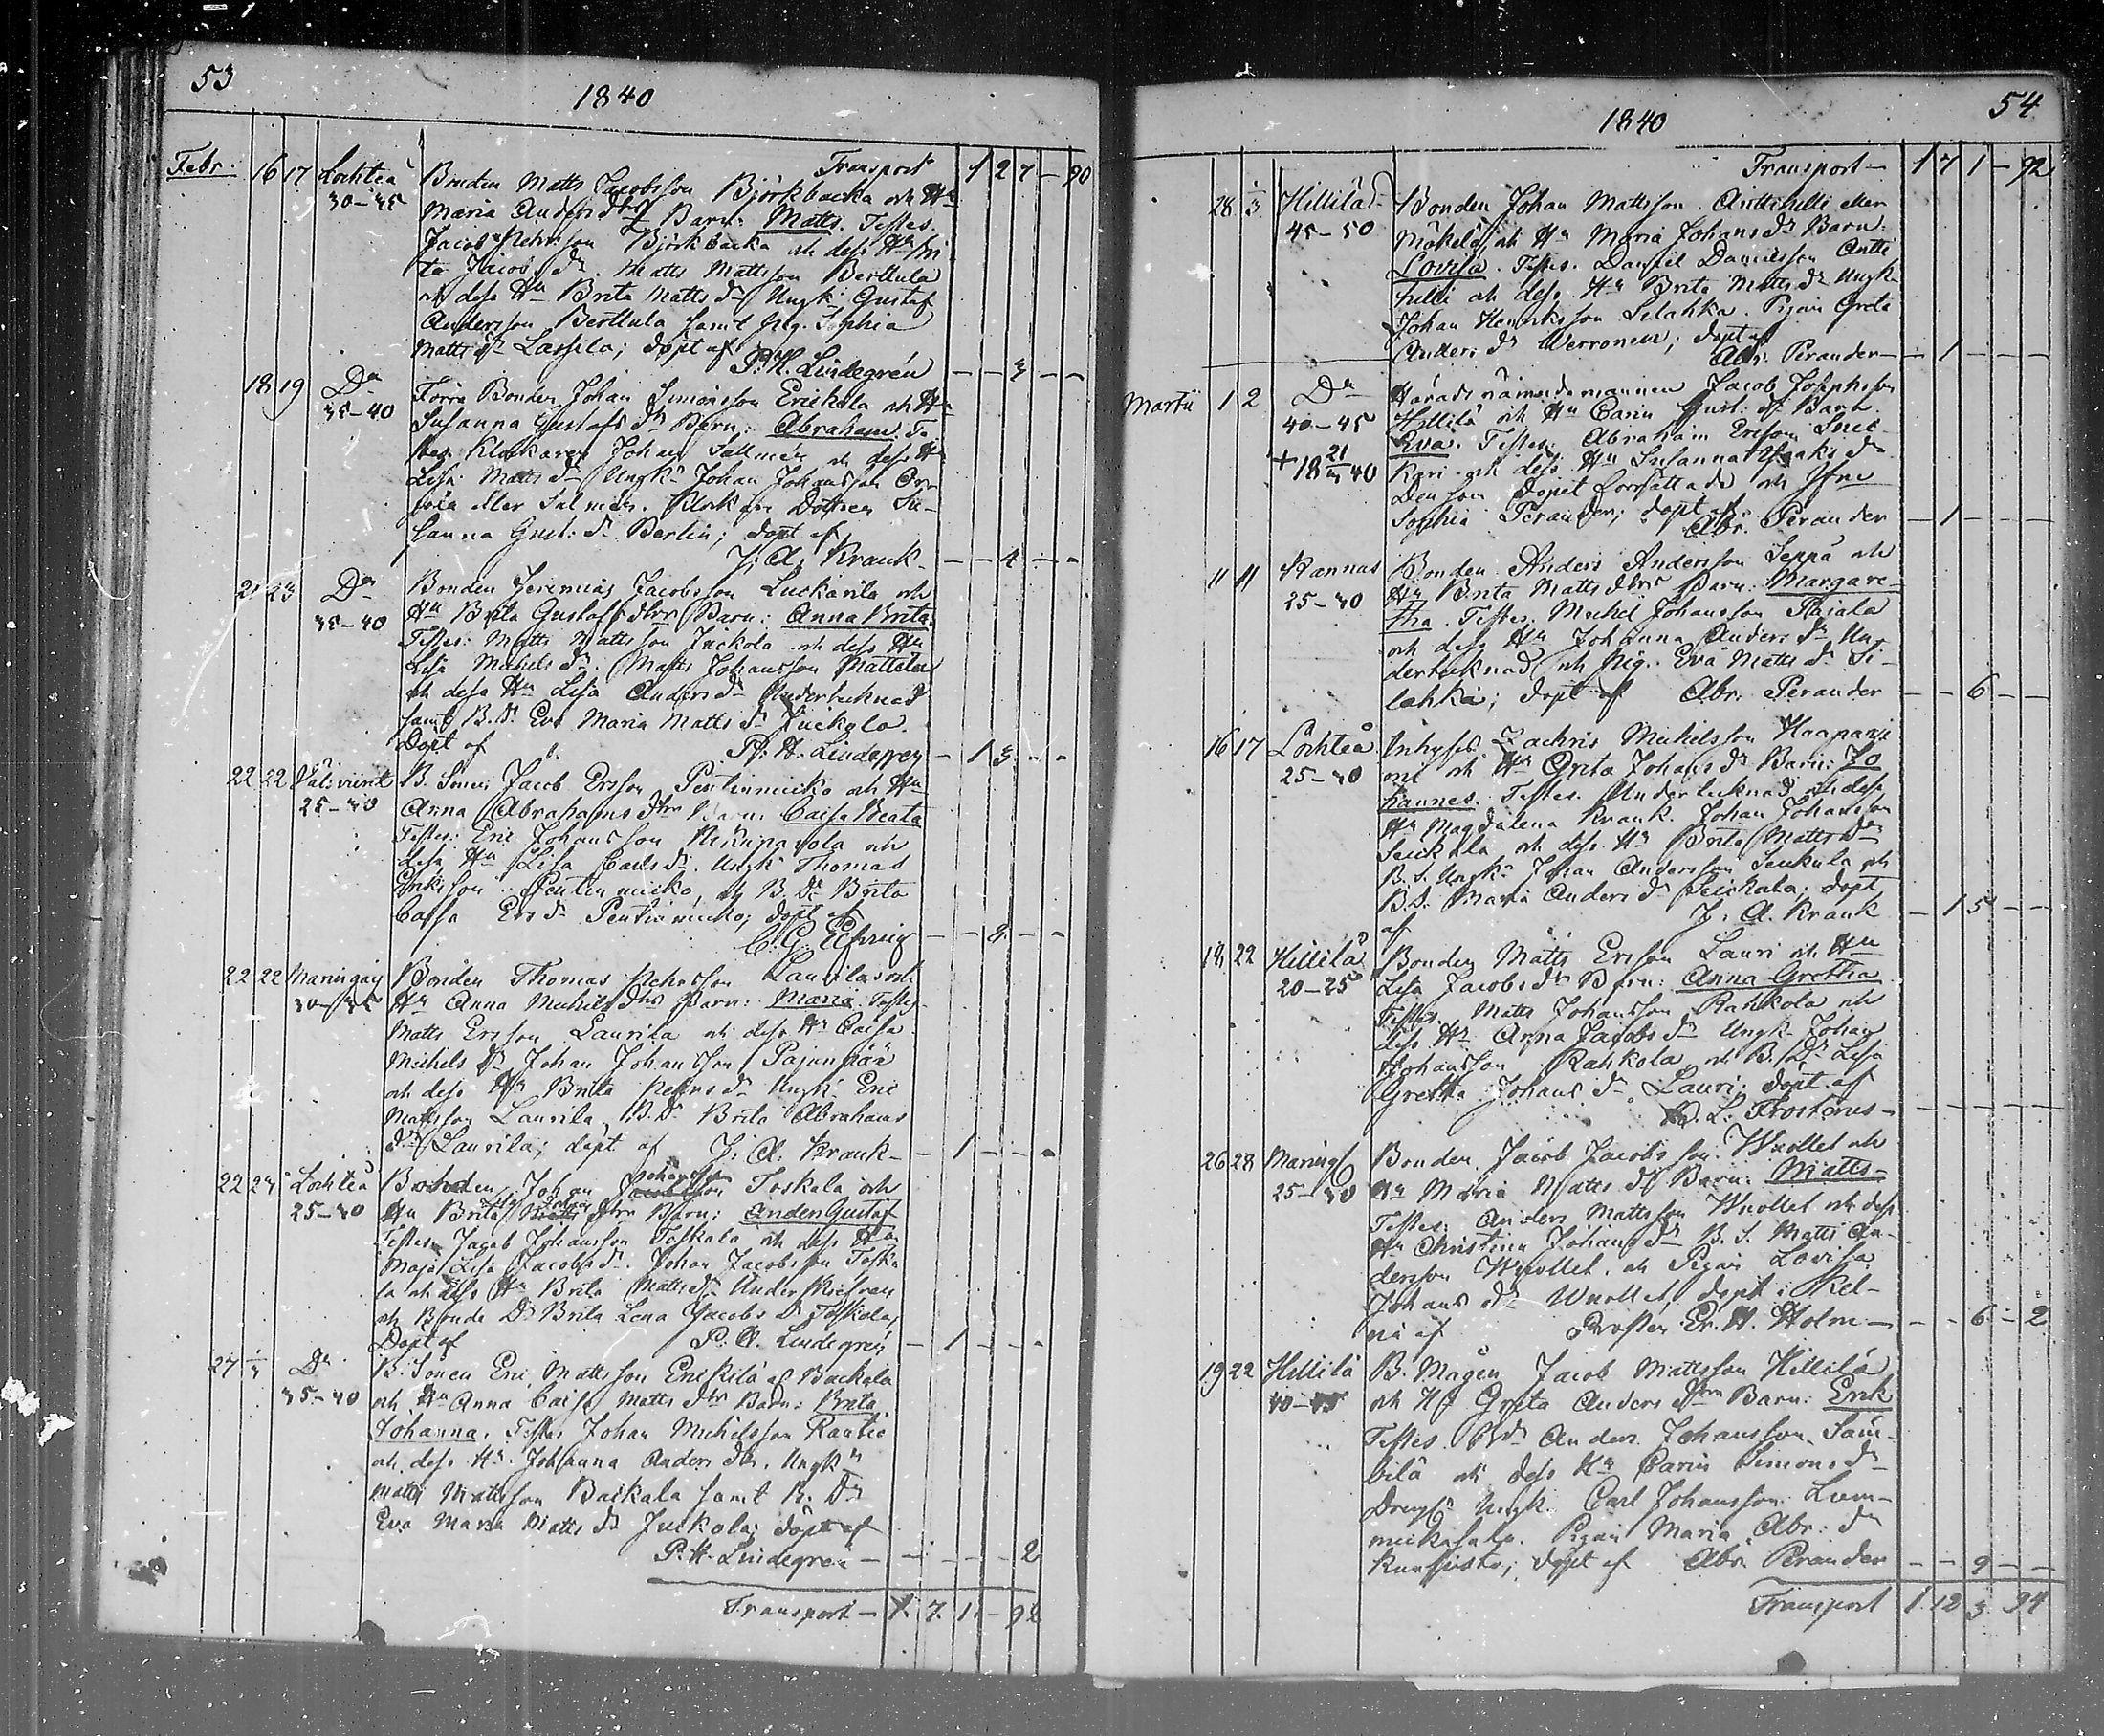 53
1840
Transport 1 2 7 — 90
Febr. 16 17 Lochteå Bonden Matts Jacobsson Björkbacka och Hu
30–35 Maria Anders dtrs Barn: Matts. Testes.
Jacob Petersson Björkbacka och dess Hu Bri
ta Jacobs dr. Matts Mattsson Berttula
och dess Hu Brita Matts dr Ungk. Gustaf
Andersson Berttula samt pig. Sophia
Matts dr Lassila; döpt af
P. H. Lindegrén — — 3 — —
18 19 Do Förra Bonden Johan Simonsson Erickola och Hu
35–40 Susanna Gustafs dr Barn: Abraham. Te
stes. Klockaren Johan Sallmén och dess Hu
Lisa Matts dr Ungk. Johan Johansson
eller Salmén. Klockare Dottren Su-
sanna Gust: dr Berlin; döpt af
J. A. Krank — — 4 — —
21 23 Do Bonden Jeremias Jacobsson Luckarila och
35–40 Hu Brita Gustafs dtrs Barn: Anna Brita.
Testes: Matts Mattsson Juckola och dess Hu
Lisa Michels dr. Matts Johansson Mattala
och dess Hu Lisa Anders dr Undertecknad
samt B. Dr. Eva Maria Matts dr Juckola.
Döpt af P. H. Lindegren — 1 3 — —
22 22 B. Sonen Jacob Ersson Pentinmicko och Hu
25–30 Anna Abrahams dtrs Barn: Caisa Beata
Testes: Eric Johansson och
dess Hu Lisa Carls dr. Ungk. Thomas
Eriksson Pentinmicko, och B. Dr. Brita
Caisa Ers dr Pentinmicko; döpt af
C. G. — — 8 — —
22 22 Maringais Bonden Thomas Petersson Laurila och
30–35 Hu Anna Michels dtrs Barn: Maria. Testes.
Matts Ersson Laurila och dess Hu Caisa
Michels dr Johan Johansson Pajunpää
och dess Hu Brita Peters dr Ungk. Eric
Mattsson Laurila, B. Dr. Brita Abrahams
dr Laurila; döpt af J. A. Krank — 1 — —
22 24 Lochteå Bonden Johan Johansson Toskala och
25–30 Hu Brita dtrs Barn: Anders Gustaf
Testes Jacob Johansson Toskala och dess Hu
Maja Lisa Jacobs dr. Johan Jacobsson Toska
la och dess Hu Brita Matts dr
och Bonde Dr Brita Lena Jacobs Dr Toskala,
Döpt af P. H. Lindegrén — 1 — —
27 1/3 Do B. Sonen Eric Mattsson Erickilä af Backala
35–40 och Hu Anna Caisa Matts dtrs Barn: Brita
Johanna. Testes Johan Michelsson Rautio
och dess Hu Johanna Anders dtr. Ungk.
Matts Mattsson Backala samt B. Dr
Eva Maria Matts dr Juckola; döpt af
P. H. Lindegren — — — — 2
Transport — 1. 7. 1. — 92
54
1840
Transport — 1 7 1 — 92
28 1/3 Hillilä Bonden Johan Mattsson Anttihilli eller
45–50 Mökelä, och Hu Maria Johans dr Barn.
Lovisa. Testes. Daniel Danielsson Antti
hilli och dess Hu Brita Matts dr Ungk.
Johan Henriksson Silahka. Pigan Greta
Anders dr Werronen; döpt af
Abr. Perander — 1 — —
Martii 1 2 Do Häradsnämndemannen Jacob Josephsson
40–45 Hillilä och Hu Carin Gust: dr Barn.
+ 18 21/3 40 Eva. Testes. Abraham Ersson
kari och dess Hu Susanna Isaaks dr
Den som dopet förrättade och Jfru
Sophia Perander; döpt af
Abr. Perander — 1 — —
11 11 Kannus Bonden Anders Andersson Seppä och
25–30 Hu Brita Matts dtrs Barn: Margare-
tha. Testes. Michel Johansson Rajala
och dess Hu Johanna Anders dr Un-
dertecknad, och Pig. Eva Matts dr Si-
lahka; döpt af Abr. Perander — — 6 — —
16 17 Lochteå Inhyses Zachris Michelsson Haapanie
25–30 mi och Hu Greta Johans dr Barn: Jo
hannes. Testes. Undertecknad och dess
Hu Magdalena Krank. Johan Johansson
Seukula och dess Hu Brita Matts dr
B. S. Ungk. Johan Andersson Seukula och
B. D. Maria Anders dr; döpt
af J. A. Krank — 1 5 — —
18 22 Hillilä Bonden Matts Ersson Lauri och Hu
20–25 Lisa Jacobs dr Barn: Anna Gretha
Testes. Matts Johansson Rahkola och
dess Hu Anna Jacobs dr Ungk. Johan
Johansson Rahkola och B. Dr Lisa
Gretha Johans dr Lauri; döpt af
L. Frosterus — — — — —
26 28 Marings Bonden Jacob Jacobsson Wuollet och
25–30 Hu Maria Matts dr Barn: Matts
Testes: Anders Mattsson Wuollet och dess
Hu Christina Johans dr B. S. Matts An-
dersson Wuollet, och Pigan Lovisa
Johans dr Wuollet, döpt i Kel-
viå af Prosten Er. H. Holm — — 6 — 2
19 22 Hillilä B. Mågen Jacob Mattsson Hillilä
40–45 och H. Greta Anders dtrs Barn: Erik
Testes. Bd. Anders Johansson Säm-
bilä och dess Hu Carin Simons dr
Drengs Ungk. Carl Johansson Lum-
. Pigan Maria Abr: dr
; döpt af Abr. Perander — — 9 — —
Transport 1. 12 3. 94